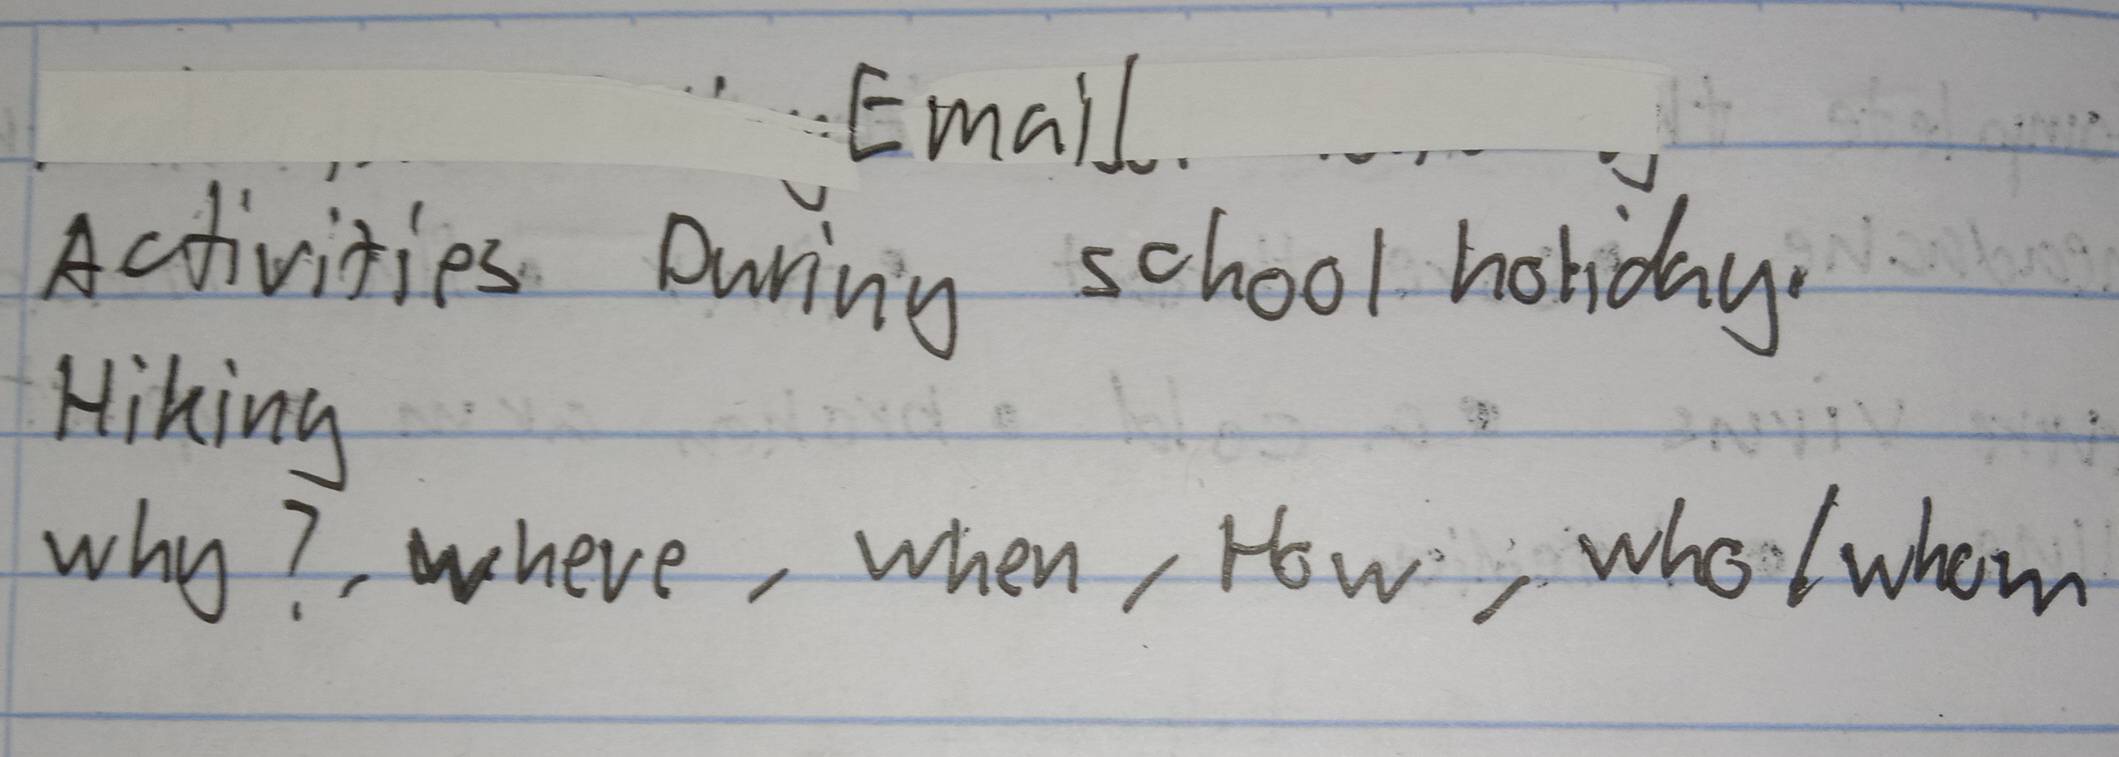 Email
Activities During school holiday.
Hiking
why?, where, when, How, who/whom